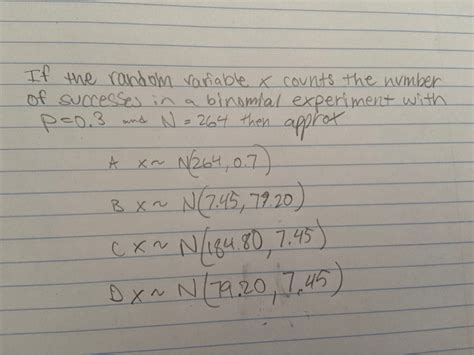 If the random variable x counts the number
of successes in a binomial experiment with
p=0.3 and N=264 then approx
A x~ N(264,0.7)
B x~ N(7.45, 79.20)
C x~ N(184.80, 7.45)
D x~ N(79.20, 7.45)